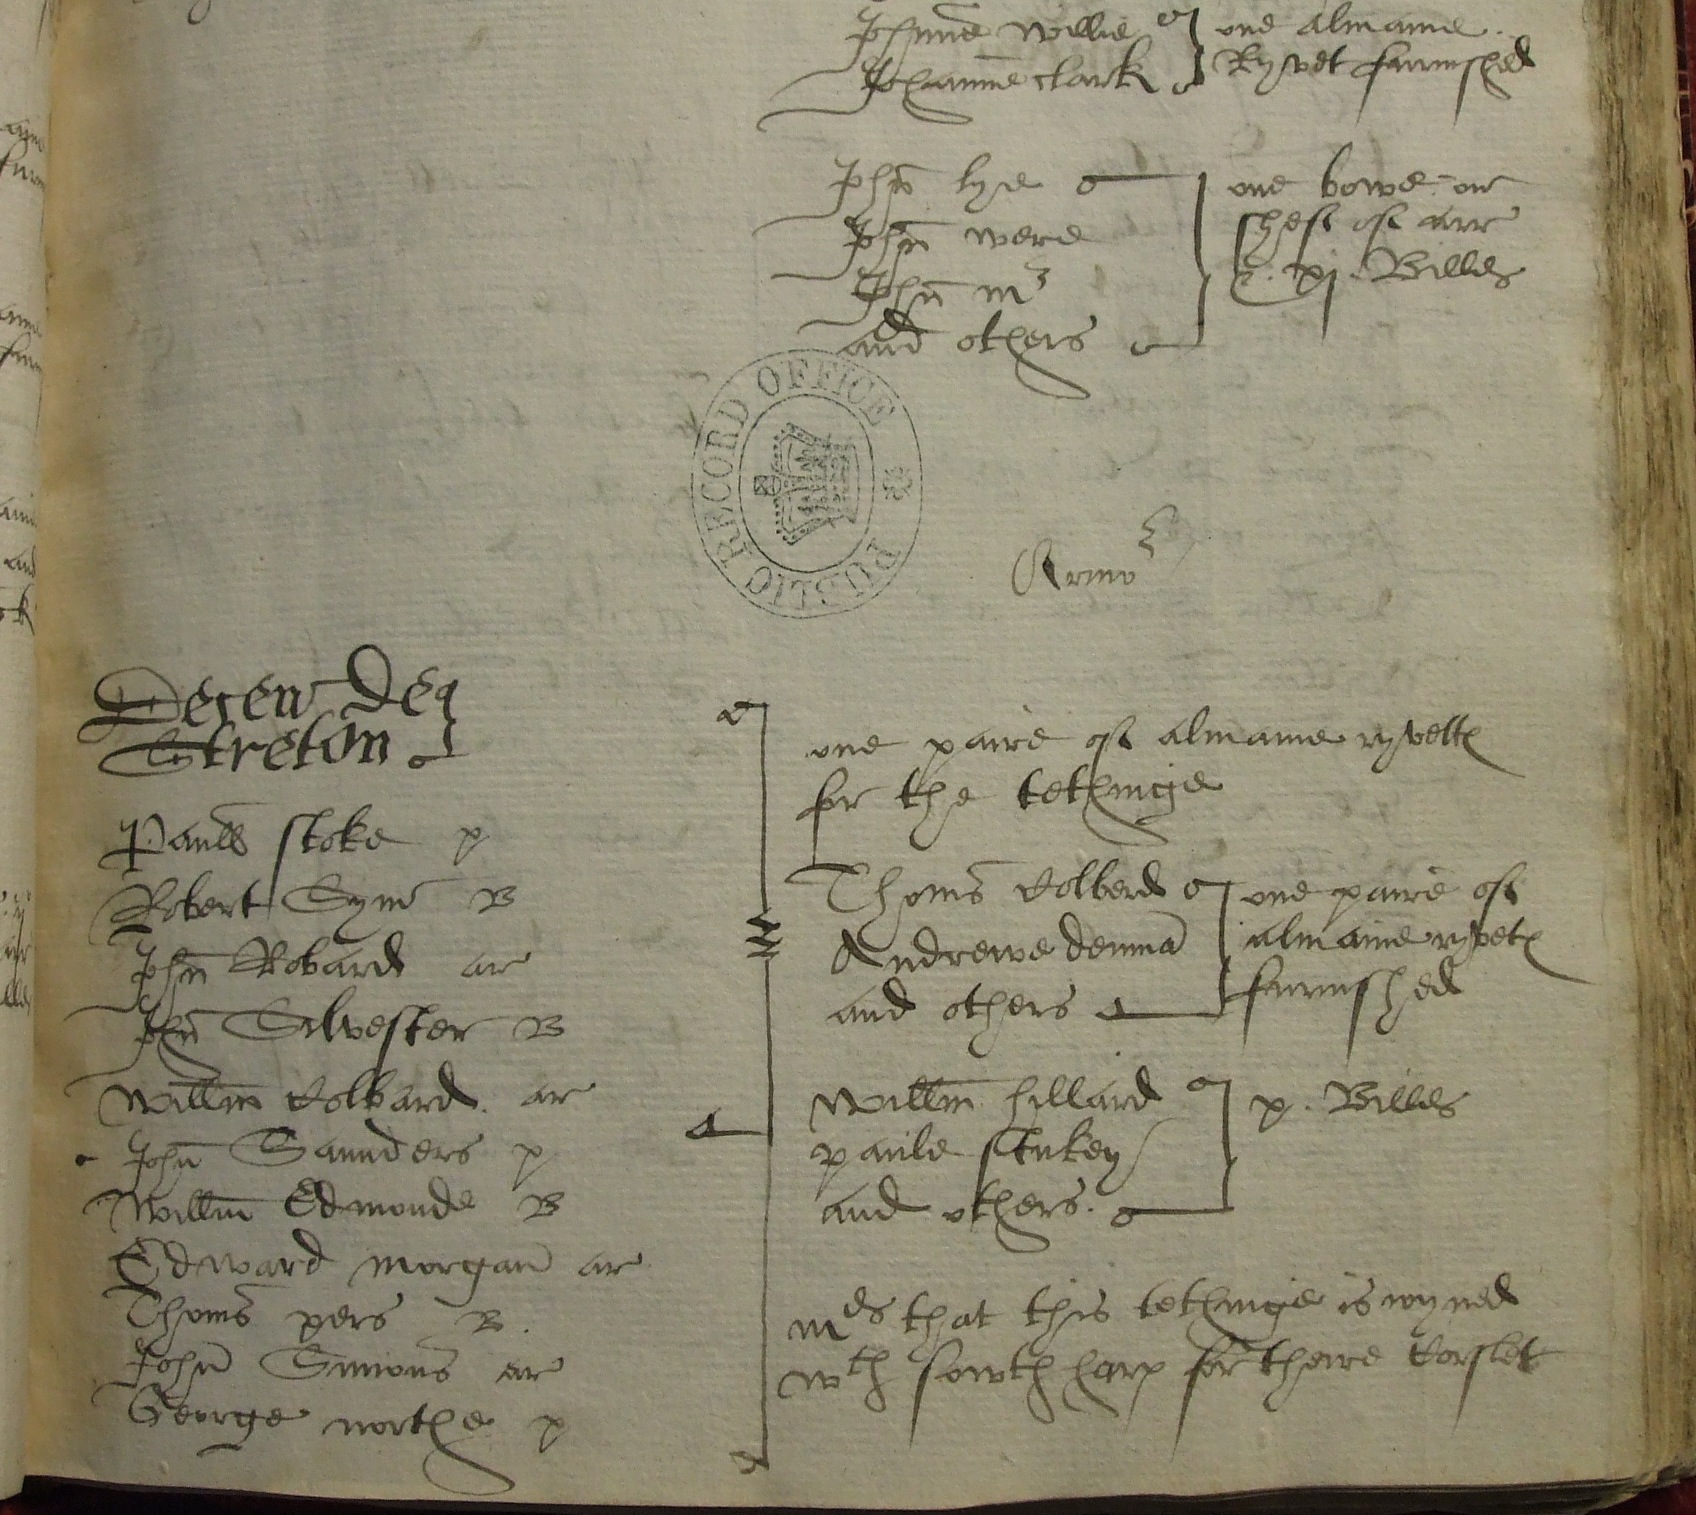 Johnne Willie
Johanne clark
one almaine
Ryvet furnished
John lye
John were
John mr
and others
one bowe one
shefe of arr
ij Billes
PUBLIC RECORD OFFICE
Armor
Decen de
Streton
Paule stoke p
Robert Syme B
John Robard ar
John Silvester B
Willm Colbard ar
John Saunders p
Willm Edmonde B
Edward morgan ar
Thoms pers B
John Simons ar
George northe p
one paire of almaine ryvette
for the tethinge
Thoms Colberd
Andrewe denman
and others
one paire of
almaine ryvete
furnished
Willm hillard
paule stukey
and others
p Billes
mds that this tethinge is ioyned
wth sowth harp for theire Corslet